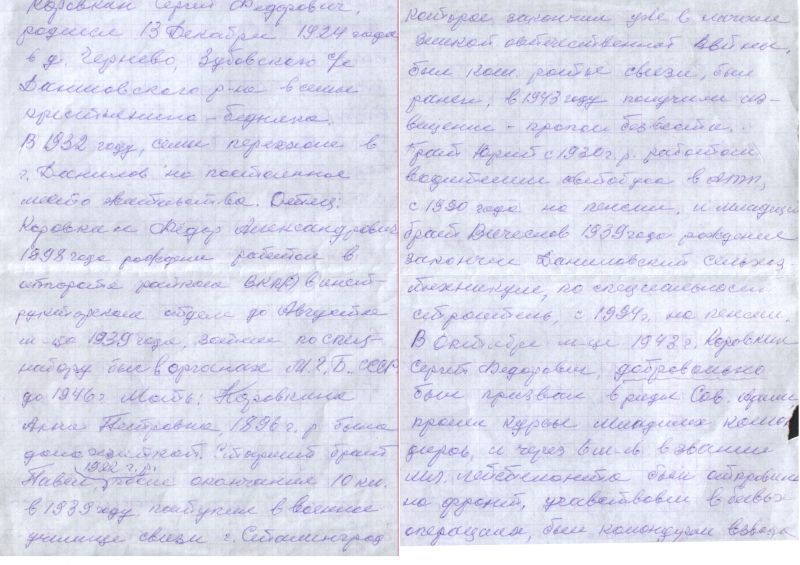 Коровкин Сергей Федорович,
родился 13 Декабря 1924 года
в д. Чернево, Зубовского с/с
Даниловского р-на в семье
крестьянина - бедняка.
В 1932 году, семья переехала в
г. Данилов на постоянное
место жительства. Отец:
Коровкин Фёдор Александрович
1898 года рожден работал в
аппарате райкома ВКП(б) в инст-
рукторском отделе до Августа
м-ца 1939 года, затем по спец-
набору был в органах М.Г.Б. СССР
до 1946 г Мать: Коровкина
Анна Петровна, 1896 г. р была
домохозяйкой. Старший брат
Павел 1922 г.р. после окончания 10 кл.
в 1939 году поступил в военное
училище связи г. Сталинград
которое закончил уже в начале
Великой отечественной войны,
был ком. роты связи, был
ранен, в 1943 году получили из-
вещение - пропал без вести.
Брат Юрий с 1930 г. р. работал
водителем автобуса в АТП,
с 1990 года на пенсии, и младший
брат Вячеслав 1939 года рождения
закончил Даниловский сельхоз.
техникум, по специальности
строитель, с 1994 г. на пенсии.
В Октябре м-це 1942 г. Коровкин
Сергей Федорович, добровольно
был призван в ряды Сов. Армии
прошел курсы младших коман-
диров, и через 6 м-в в звании
мл. лейтенанта был отправлен
на фронт, участвовал в боевых
операциях, был командиром взвода